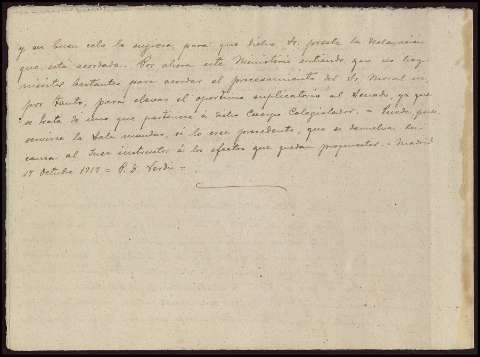 y su buen celo le sugiera, para que dicho Sr. preste la declaración
que está acordada. Por ahora este Ministerio entiende que no hay
méritos bastantes para acordar el procesamiento del Sr. Moral ni
por tanto, para elevar el oportuno suplicatorio al Senado, ya que
se trata de uno que pertenece á dicho Cuerpo Colegislador. = Puede, pues
servirse la Sala mandar, si lo cree procedente, que se devuelva la
causa al Juez instructor á los efectos que quedan propuestos. = Madrid
17 Octubre 1919 = P. D. =